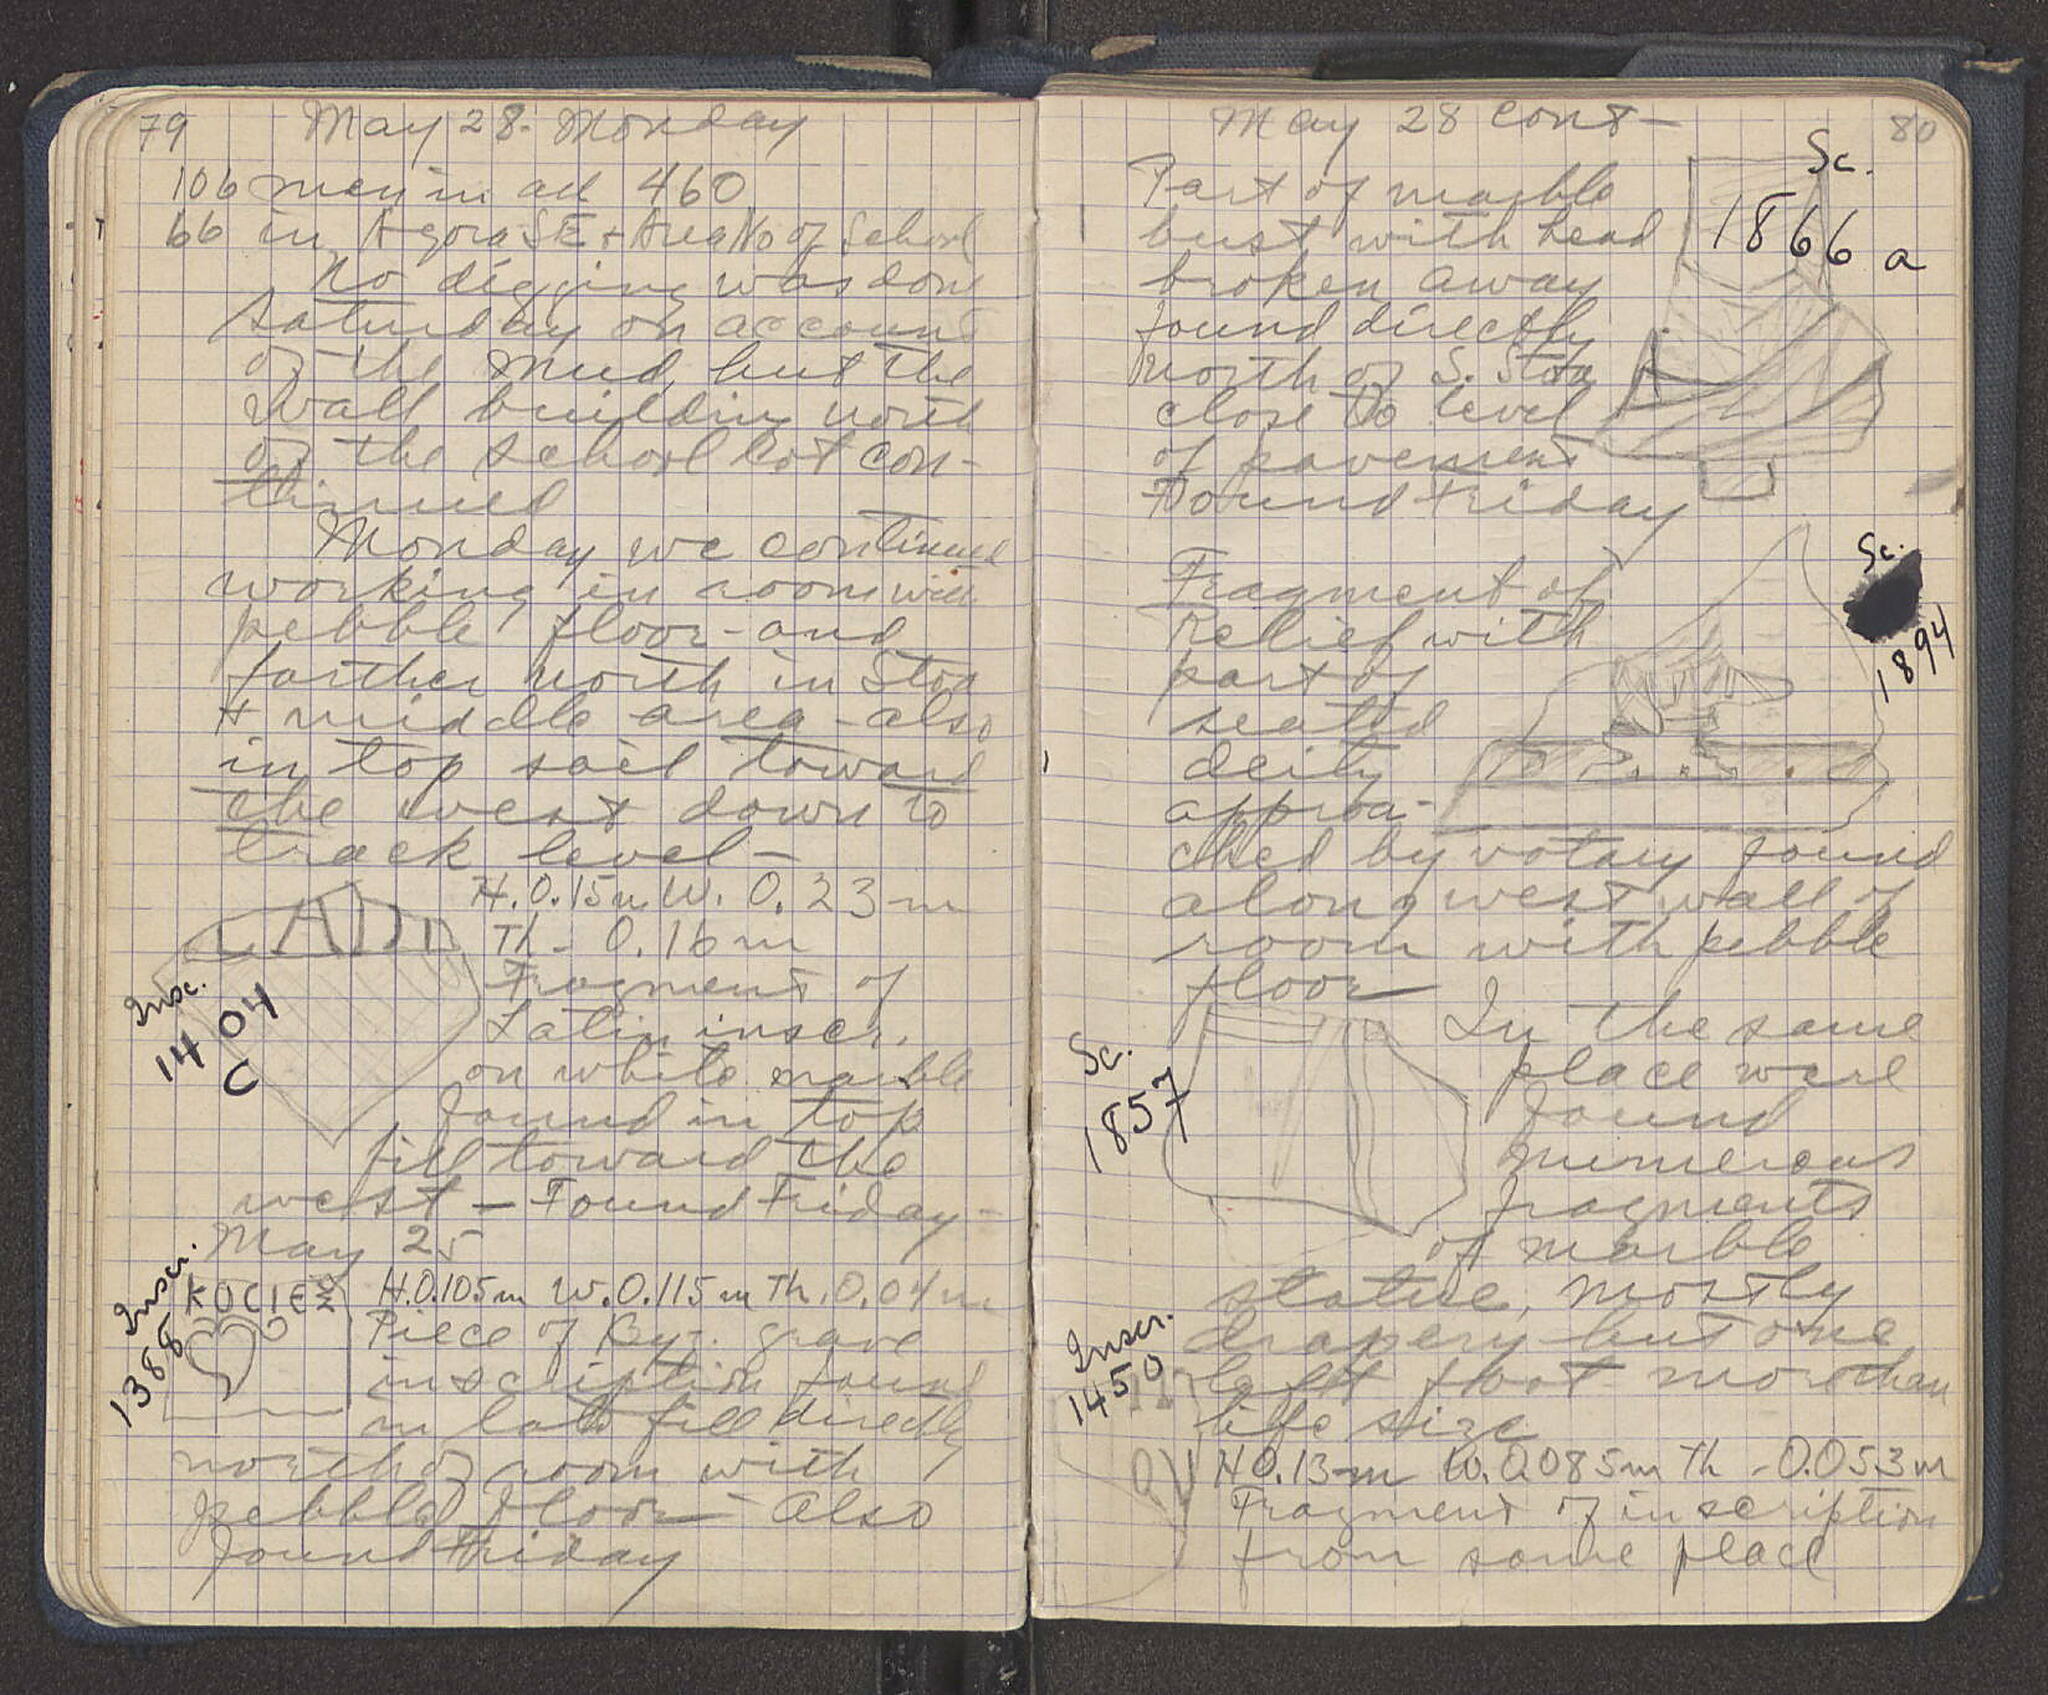 79 May 28. Monday
106 men in all 460
66 in Agora SE + Area No of School
No digging was done
Saturday on account
of the mud, but the
wall building north
of the school lot con-
tinued
Monday we continued
working in room with
pebble floor - and
farther north in Stoa
+ middle area - also
in top soil toward
the west down to
track level -
H. 0.15m W. 0.23m
Th - 0.16m
Fragment of
Latin inscr.
on white marble
found in top
fill toward the
west - Found Friday -
May 25
Insc.
1404
c
H. 0.105m W. 0.115m Th. 0.04m
Piece of Byz. grave
inscription found
in late fill directly
north of room with
pebbled floor - also
found Friday
Inscr.
1388
ΚΟCΙΕ
May 28 cont- 80
Part of marble
bust with head
broken away
found directly
north of S. Stoa
close to level
of pavement
Found Friday
Sc.
1866 a
Fragment of
relief with
part of
seated
deity
approa-
ched by votary found
along west wall of
room with pebble
floor
Sc.
1894
In the same
place were
found
numerous
fragments
of marble
statue, mostly
drapery but one
left foot more than
life size
Sc.
1857
Inscr.
1450
H 0.13m W. 0.085m Th - 0.053m
Fragment of inscription
from same place